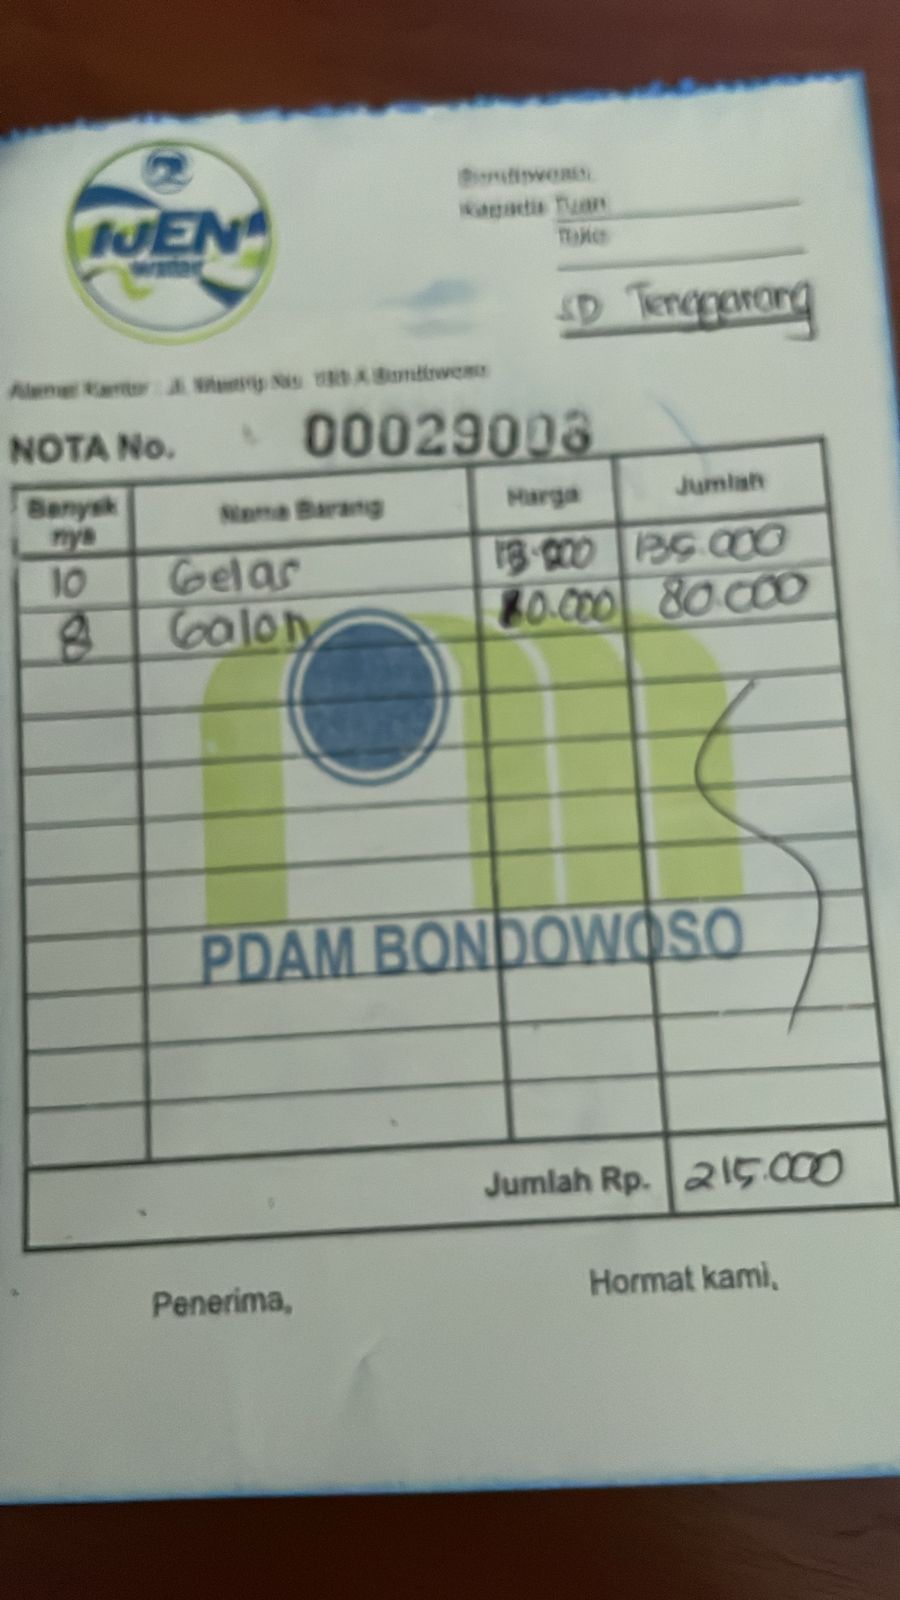 IJEN
water
Bondowoso,
Kepada Tuan
Toko
SD Tenggarang
Alamat Kantor : Jl. Bondowoso
NOTA No. 00029008
Banyak nya Nama Barang Harga Jumlah
10 Gelas 135.000
8 Galon 10.000 80.000
PDAM BONDOWOSO
Jumlah Rp. 215.000
Penerima, Hormat kami,